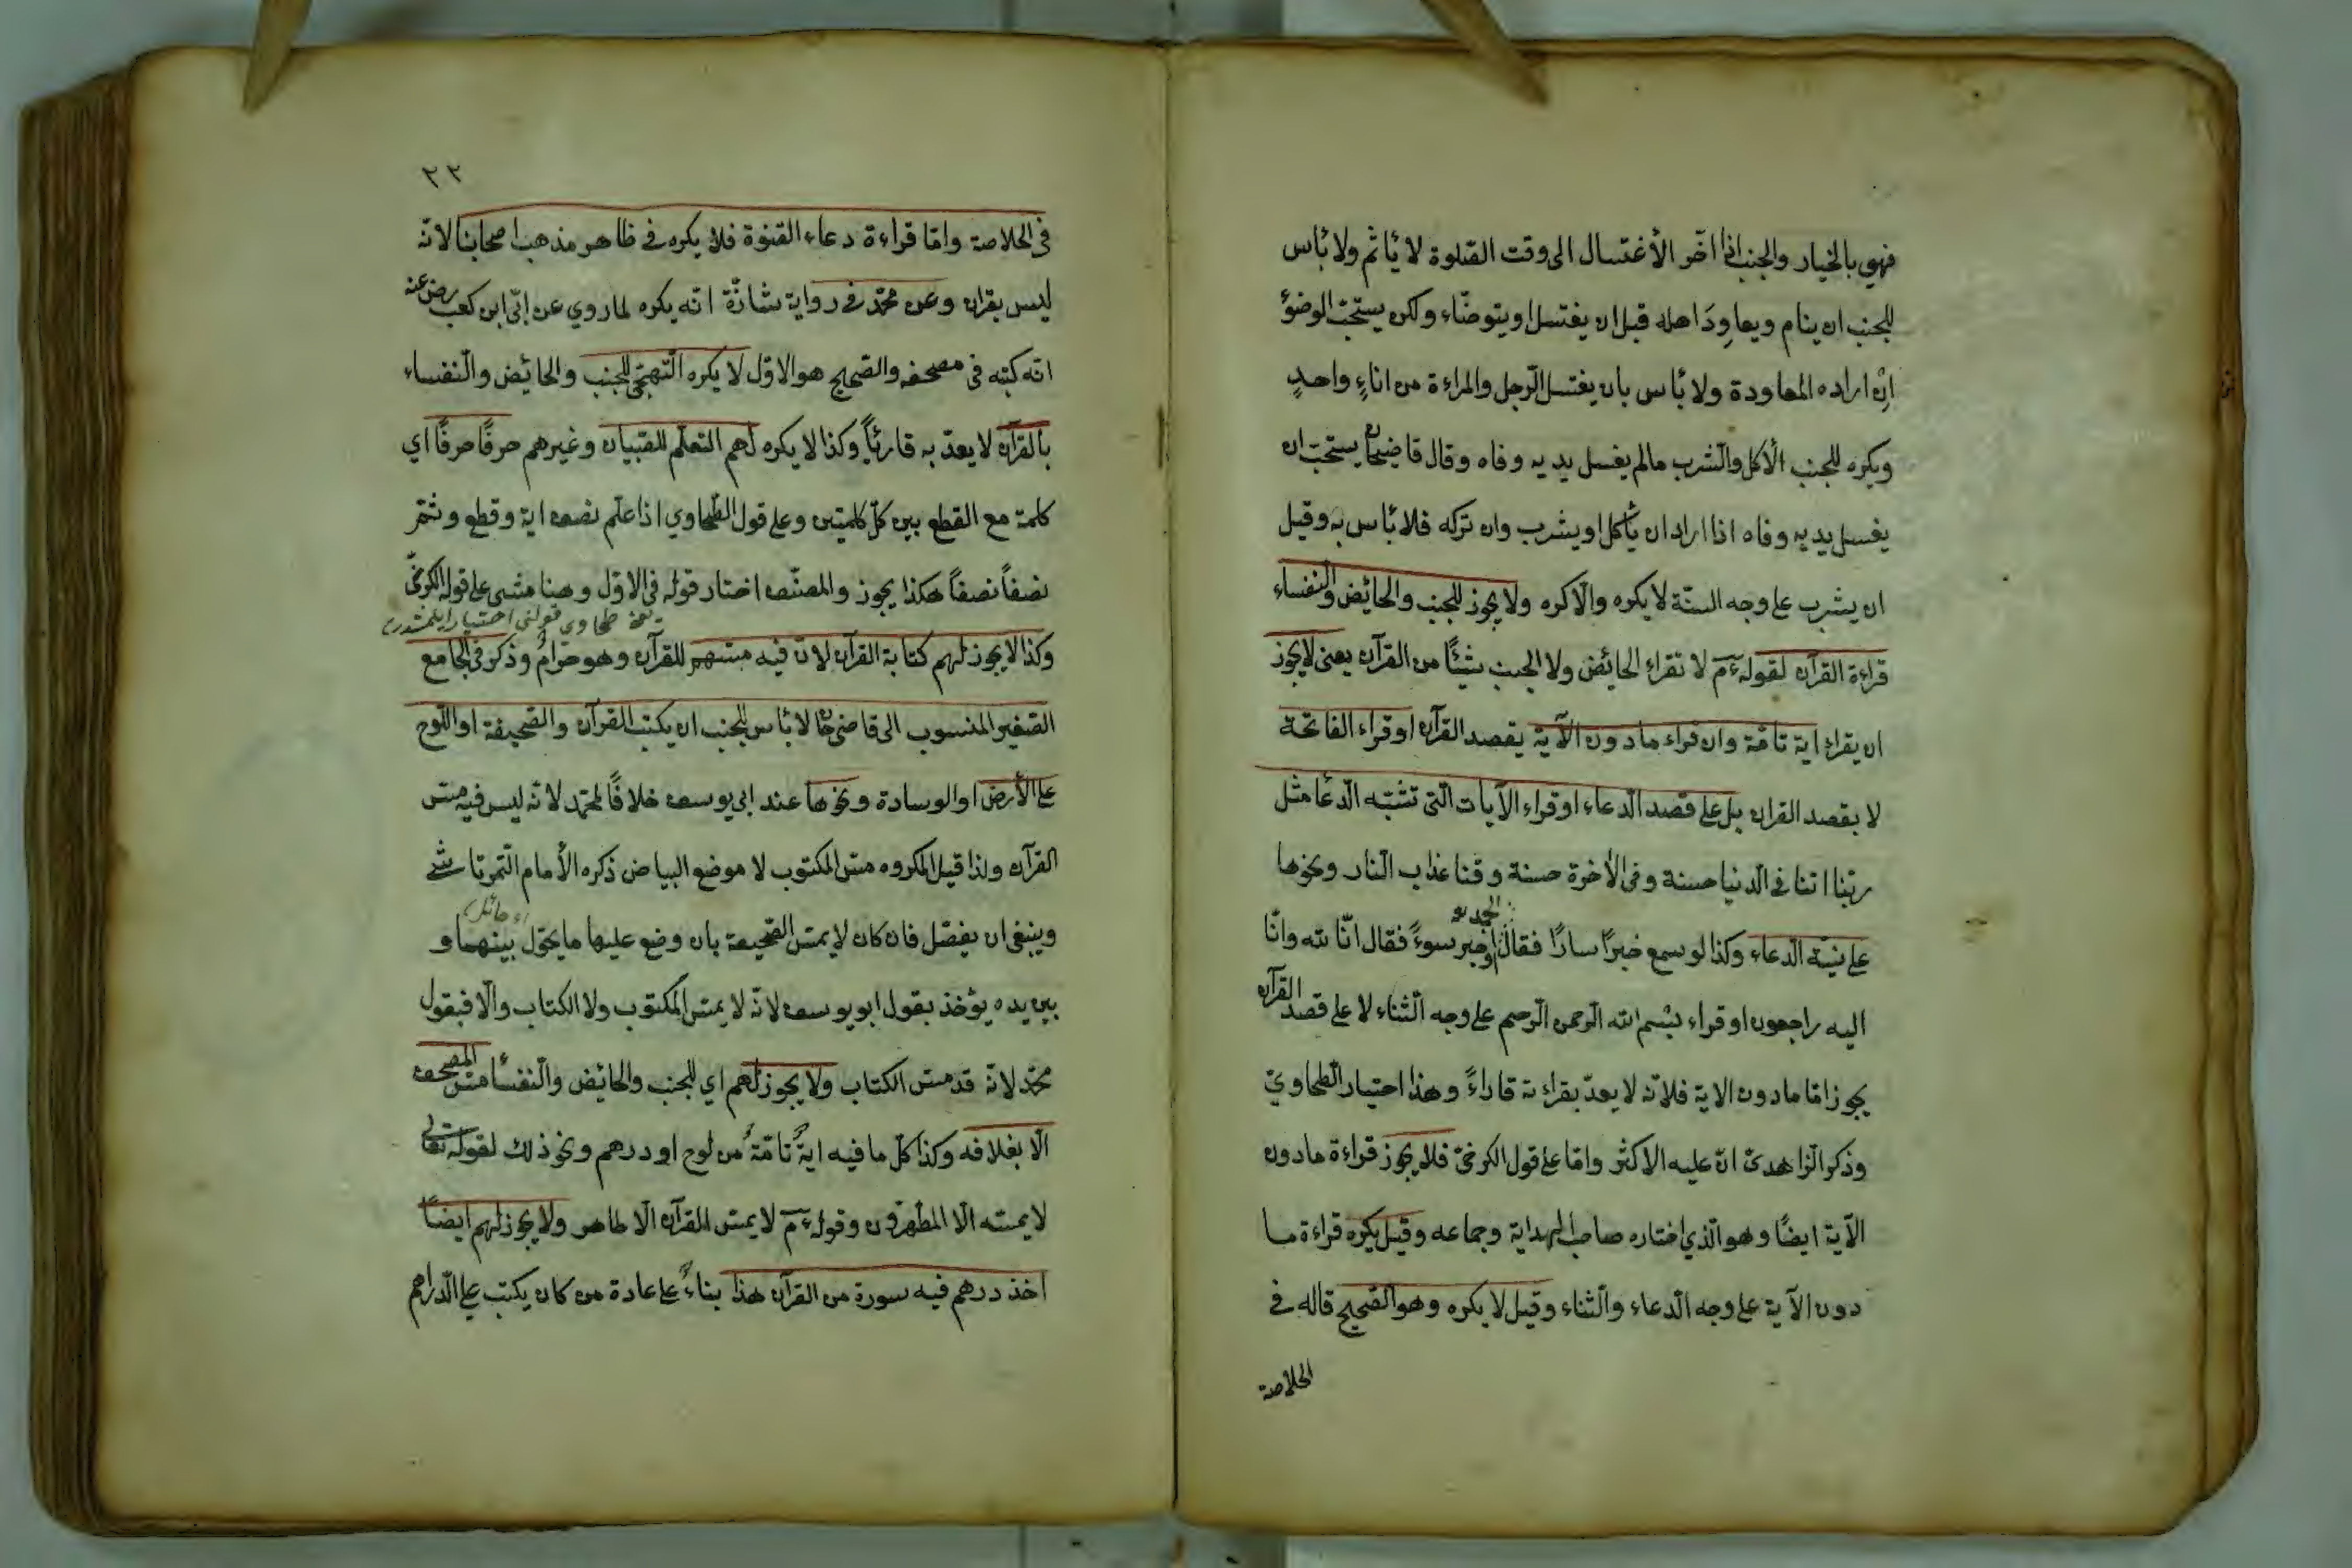 فهي بالخيار والجنب اذا اخر الأغتسال الى وقت الصلوة لا يأثم ولا بأس
للجنب ان ينام ويعاود اهله قبل ان يغتسل او يتوضاء ولكن يستحب الوضوء
ان اراده المعاودة ولا بأس بان يغتسل الرجل والمراءة من اناء واحد
ويكره للجنب الأكل والشرب مالم يغسل يديه وفاه وقال قاضيخان يستحب ان
يغسل يديه وفاه اذا اراد ان يأكل او يشرب وان تركه فلا بأس به وقيل
ان يشرب على وجه السنة لا يكره والا كره ولا يجوز للجنب والحائض والنفساء
قراءة القرآن لقوله عم لا تقراء الحائض ولا الجنب شيئا من القرآن يعنى لا يجوز
ان يقراء اية تامة وان قراء مادون الآية بقصد القرآن او قراء الفاتحة
لا بقصد القران بل على قصد الدعاء او قراء الآيات التى تشبه الدعا مثل
ربنا اتنا فى الدنيا حسنة وفى الأخرة حسنة وقنا عذاب النار ونحوها
على نية الدعاء وكذا لو سمع خبرا سارا فقال الحمد لله او خبر سوء فقال انا لله وانا
اليه راجعون او قراء بسم الله الرحمن الرحيم على وجه الثناء لا على قصد القرآن
يجوز اما مادون الاية فلانه لا يعد بقراءته قاراء وهذا احتيار الطحاوي
وذكر الزاهدى ان عليه الاكثر واما على قول الكرخى فلا يجوز قراءة مادون
الآية ايضا وهو الذي اختاره صاحب الهداية وجماعه وقيل يكره قراءة ما
دون الآية على وجه الدعاء والثناء وقيل لا يكره وهو الصحيح قاله فى
الخلاصة
٢٢
فى الخلاصة واما قراءة دعاء القنوة فلا يكره فى ظاهر مذهب اصحابنا لانه
ليس بقران وعن محمد فى رواية شاذة انه يكره لما روي عن ابى ابن كعب رضى عنه
انه كتبه فى مصحفه والصحيح هو الاول لا يكره التهجى للجنب والحائض والنفساء
بالقرآن لا يعد به قارئا وكذا لا يكره لهم التعلم للصبيان وغيرهم حرفا حرفا اي
كلمة مع القطع بين كل كلمتين وعلى قول الطحاوي اذا علم نصف اية وقطع وثم
نصفا نصفا هكذا يجوز والمصنف اختار قوله فى الاول وهنا مشى على قوله الكرخى
يعنى طحاوى قولنى احتيار
وكذا لا يجوز لهم كتابة القرآن لان فيه مسهم للقرآن وهو حرام وذكر فى الجامع
الصغير المنسوب الى قاضى خان لا بأس للجنب ان يكتب القرآن والصحيفة او اللوح
على الأرض او الوسادة ونحوها عند ابى يوسف خلافا لمحمد لانه ليس فيه مس
القرآن ولذا قيل المكروه مس المكتوب لا موضع البياض ذكره الأمام التمرتاشى
وينبغى ان يفصل فان كان لا يمس الصحيفة بان وضع عليها ما يحول بينهما و
اى حائل
بين يده يؤخذ بقول ابو يوسف لانه لا يمس المكتوب ولا الكتاب والا فبقول
محمد لانه قد مس الكتاب ولا يجوز لهم اي للجنب والحائض والنفسأ مس المصحف
الا بغلافه وكذا كل ما فيه اية تامة من لوح او درهم ونحو ذلك لقوله تعالى
لا يمسه الا المطهرون وقوله عم لا يمس القرآن الا طاهر ولا يجوز لهم ايضا
اخذ درهم فيه سورة من القرآن هذا بناء على عادة من كان يكتب على الدراهم